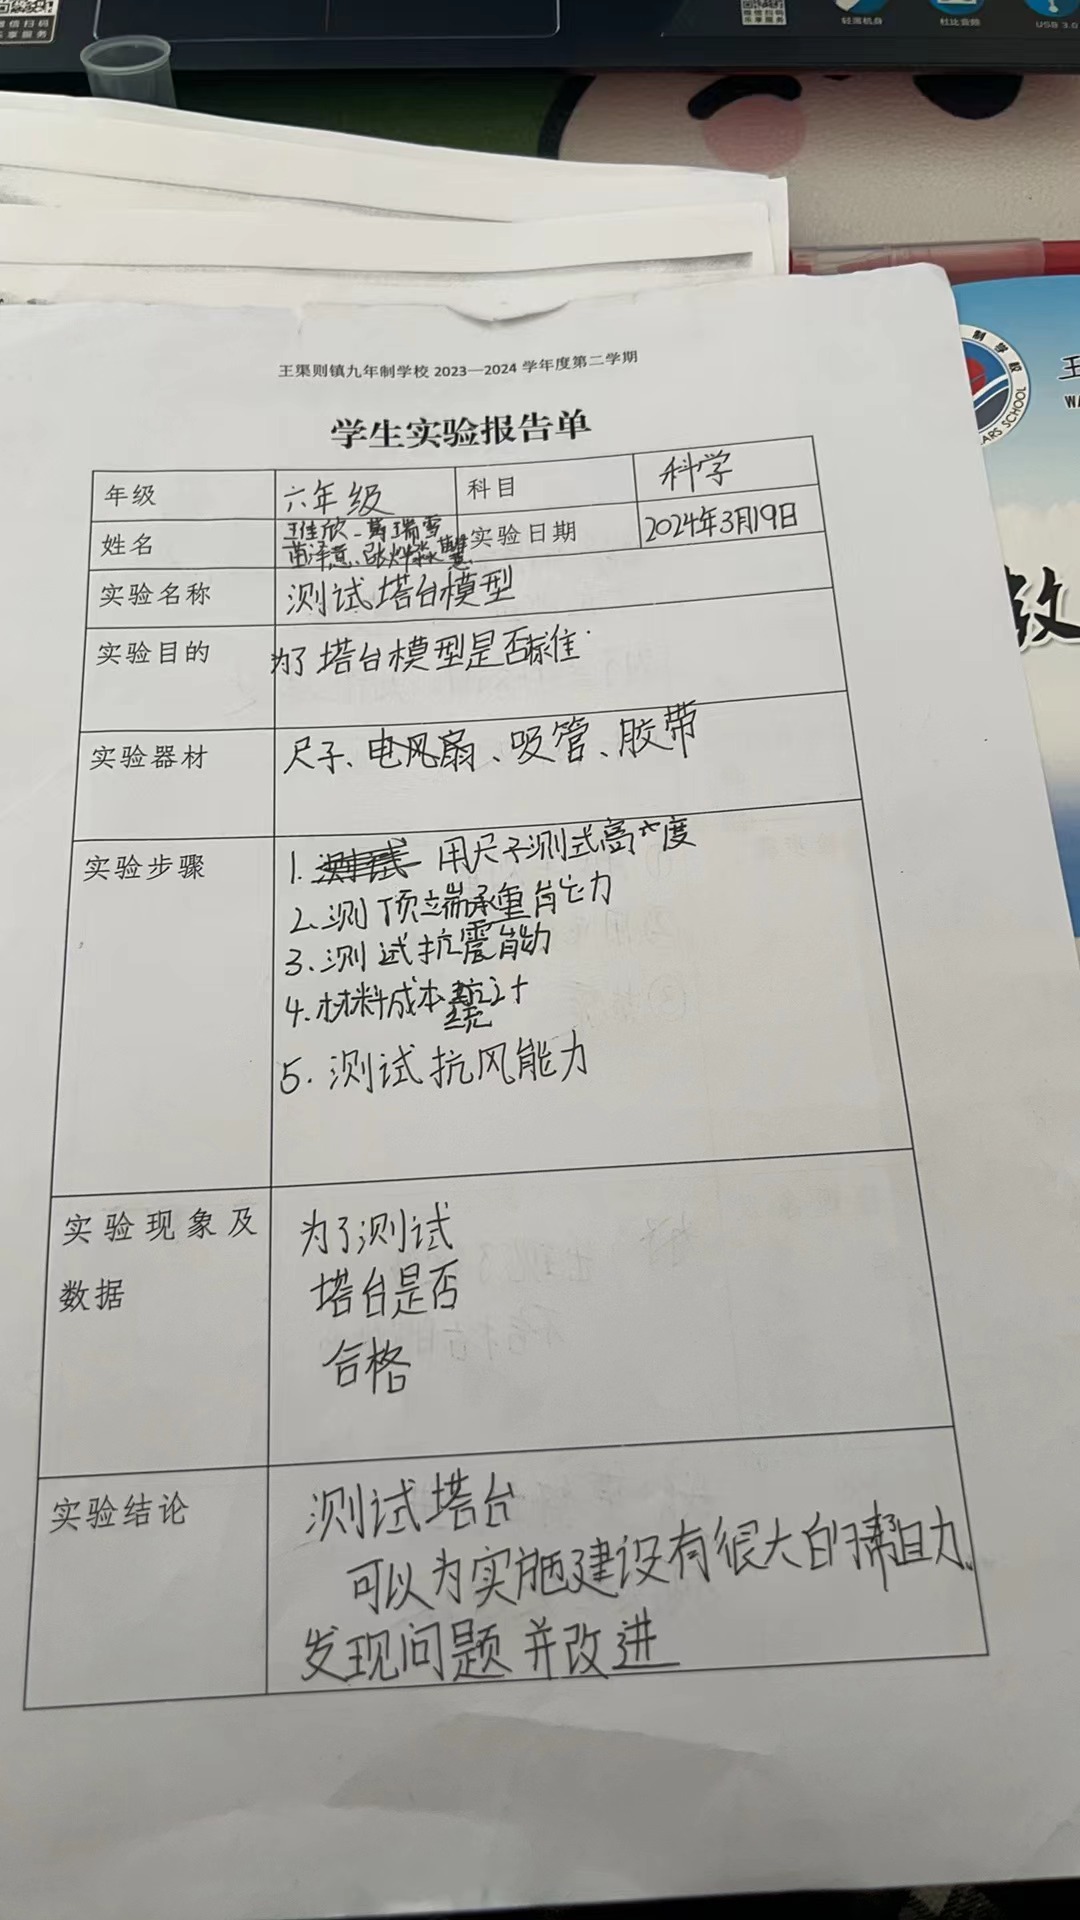 轻薄机身
杜比音频
USB 3.0
王渠则镇九年制学校 2023—2024 学年度第二学期
学生实验报告单
年级 六年级 科目 科学
姓名 王佳欣、葛瑞雪 实验日期 2024年3月19日
实验名称 测试塔台模型
实验目的 为了塔台模型是否标准
实验器材 尺子、电风扇、吸管、胶带
实验步骤 1. 用尺子测式高度
2.测顶端承重能力
3.测试抗震能力
4.材料成本统计
5.测试抗风能力
实验现象及 为了测试
数据 塔台是否
合格
实验结论 测试塔台
可以为实施建设有很大的帮助力
发现问题并改进
制学校
ARS SCHOOL
王
WA
教